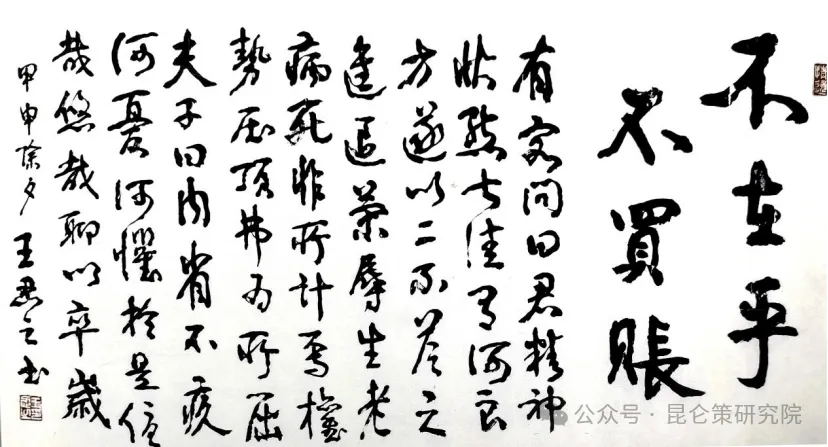 不在乎
不買賬
有客問曰君精神
佳有何良
方遂以二不答之
進退榮辱生老
病死非所計焉權
勢壓頂弗為所屈
夫子曰內省不疚
何憂何懼於是優
哉悠哉聊以卒歲
甲申除夕 王之書
公众号·昆仑策研究院